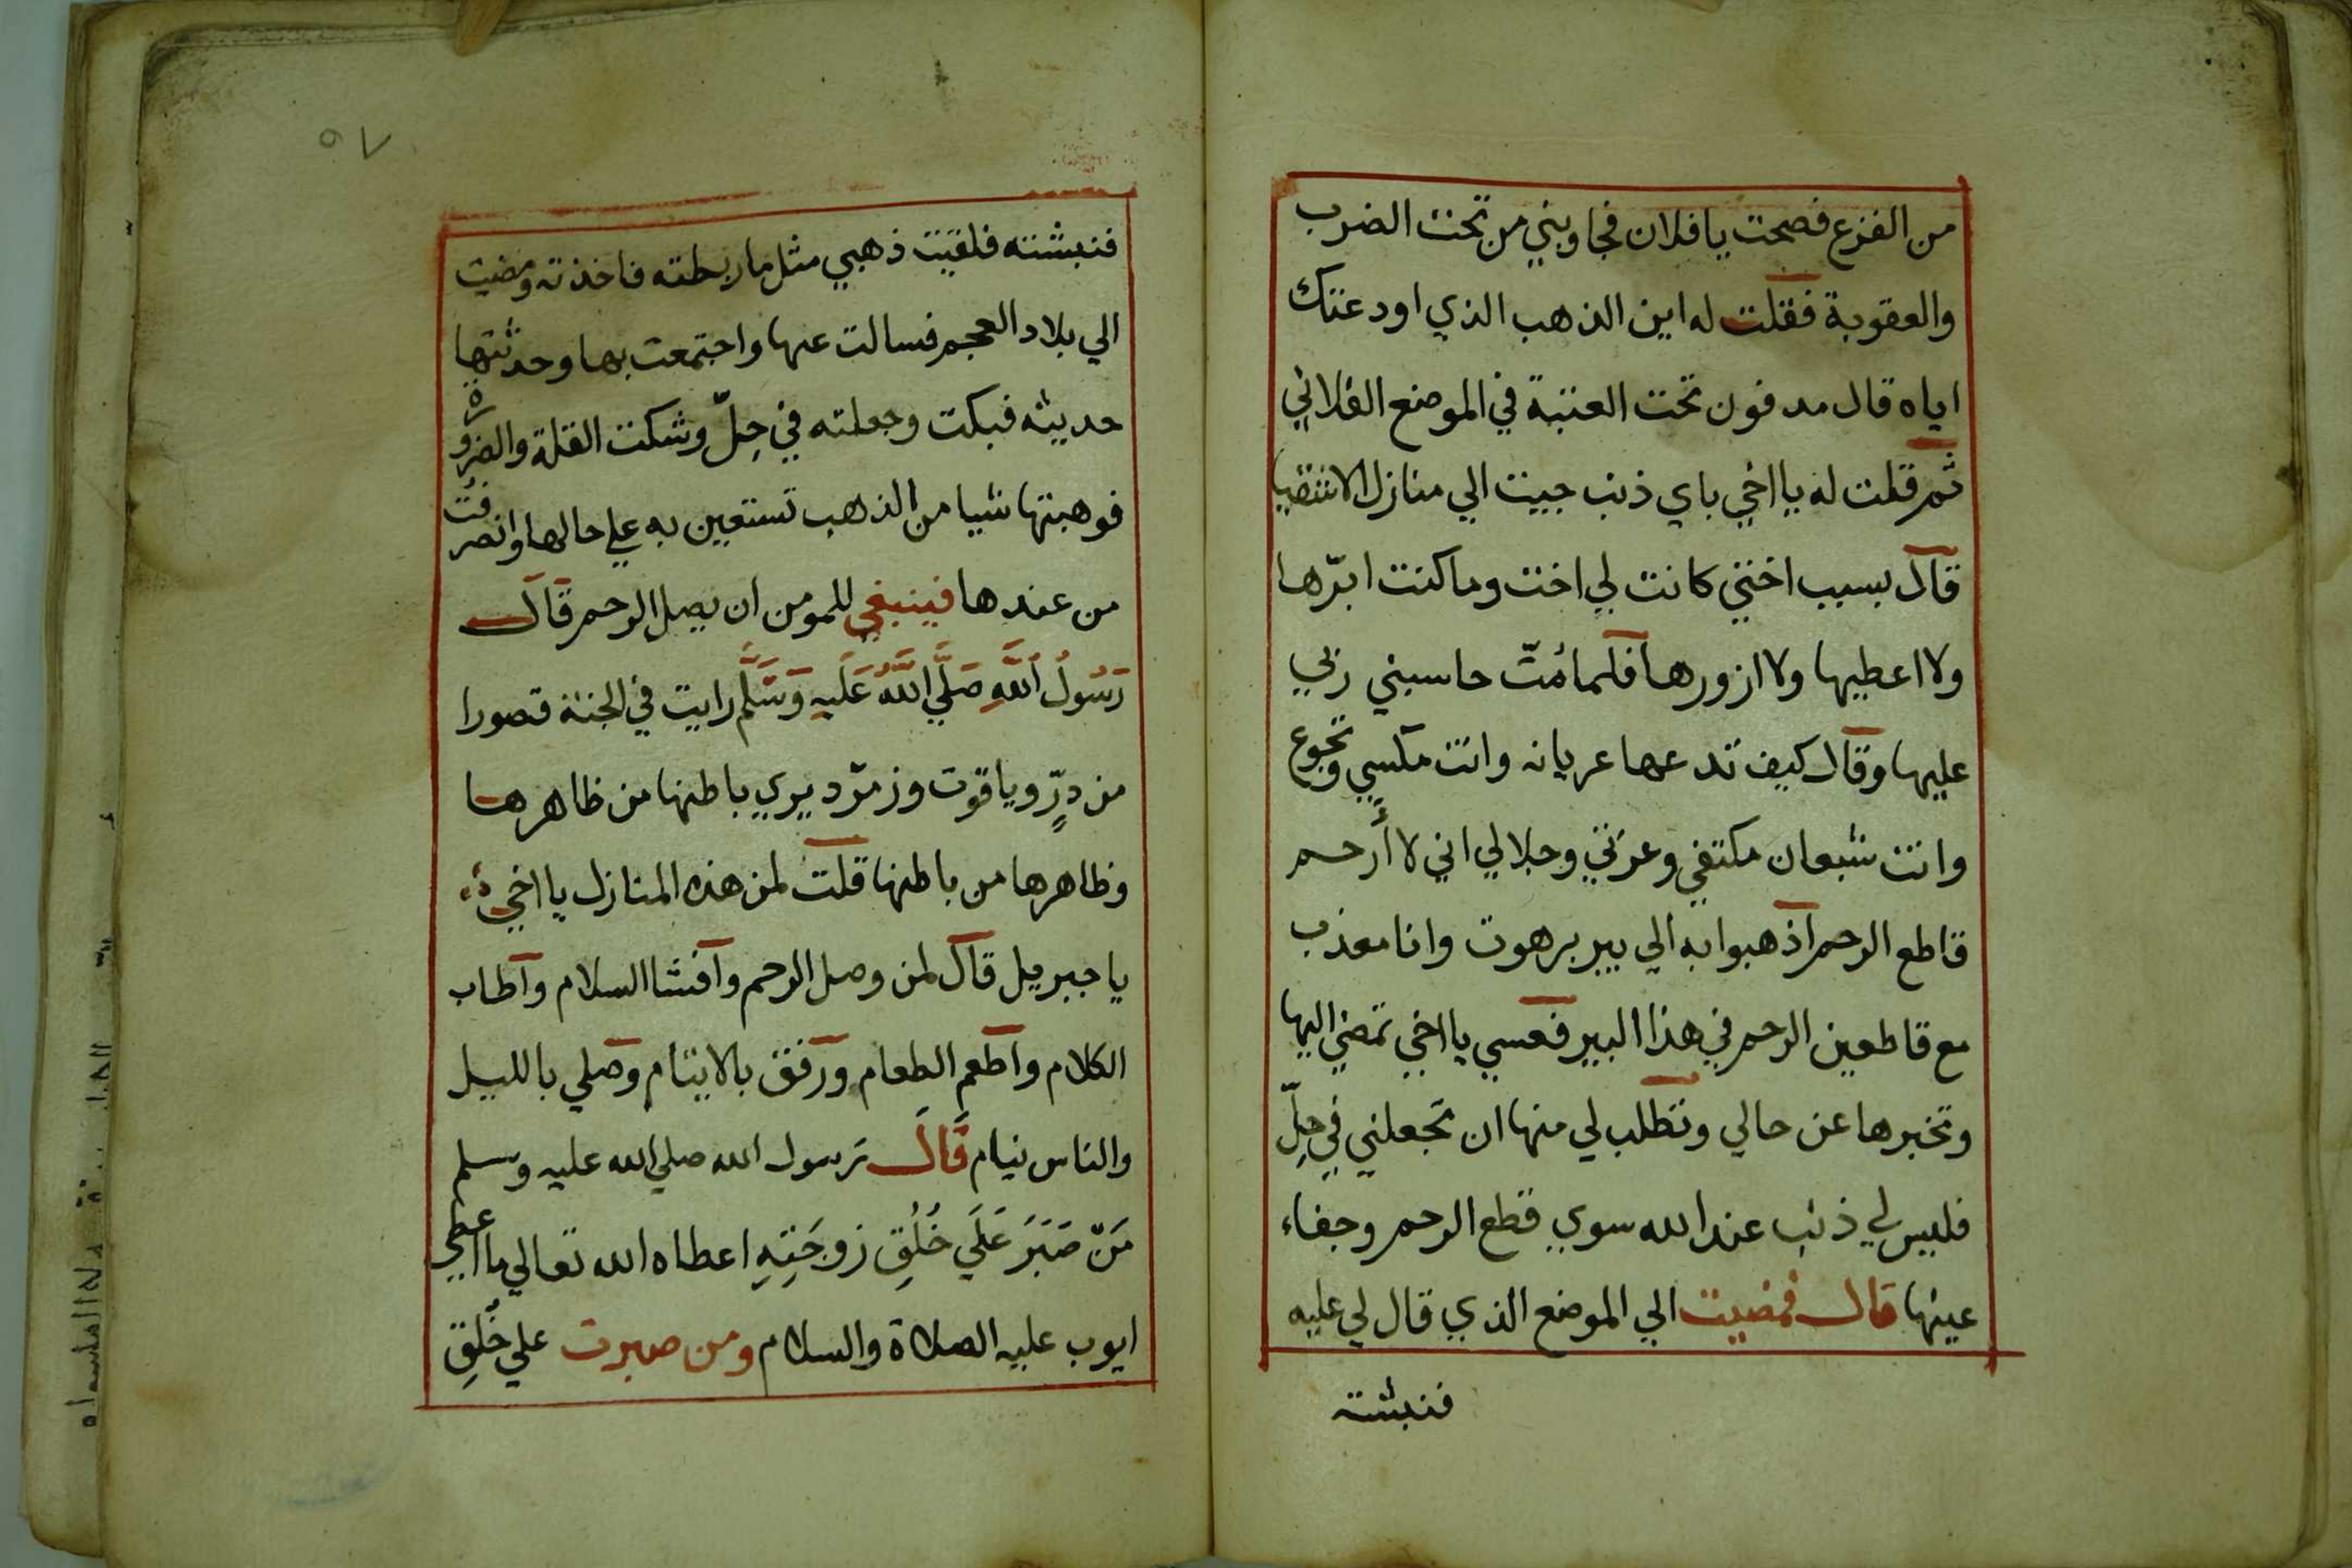 من الفزع فصحت يا فلان فجاوبني من تحت الضرب
والعقوبة فقلت له اين الذهب الذي اودعتك
اياه قال مدفون تحت العتبة في الموضع الفلاني
ثم قلت له يا اخي باي ذنب جيت الي منازل الاشقيا
قال بسبب اختي كانت لي اخت وما كنت ابرّها
ولا اعطيها ولا ازورها فلما مُتّ حاسبني ربي
عليها وقال كيف تدعها عريانه وانت مكسي وتجوع
وانت شبعان مكتفي وعزتي وجلالي اني لا أرحم
قاطع الرحم اذهبوا به الي بير برهوت وانا معذب
مع قاطعين الرحم في هذا البير فعسي يا اخي تمضي اليها
وتخبرها عن حالي وتطلب لي منها ان تجعلني في حِلّ
فليس لي ذنب عند الله سوي قطع الرحم وجفاء
عينها قال فمضيت الي الموضع الذي قال لي عليه
فنبشته
٩٧
فنبشته فلقيت ذهبي مثل ما ربطته فاخذته ومضيت
الي بلاد العجم فسالت عنها واجتمعت بها وحدثتها
حديثه فبكت وجعلته في حِلّ وشكت القلة والضرورة
فوهبتها شيا من الذهب تستعين به علي حالها وانصرفت
من عندها فينبغي للمومن ان يصل الرحم قال
رَسُولُ اللَّهِ صَلَّي اللَّهُ عَلَيهِ وَسَلَّم رايت في الجنة قصورا
من درٍّ وياقوت وزمرّد يري باطنها من ظاهرها
وظاهرها من باطنها قلت لمن هذه المنازل يا اخي
يا جبريل قال لمن وصل الرحم وافشا السلام واطاب
الكلام واطعم الطعام ورفق بالايتام وصلي بالليل
والناس نيام قَالَ رسول الله صلي الله عليه وسلم
مَنْ صَبَرَ عَلَي خُلُقِ زَوجَتِهِ اعطاه الله تعالي ما اعطي
ايوب عليه الصلاة والسلام ومن صبرت علي خُلقِ